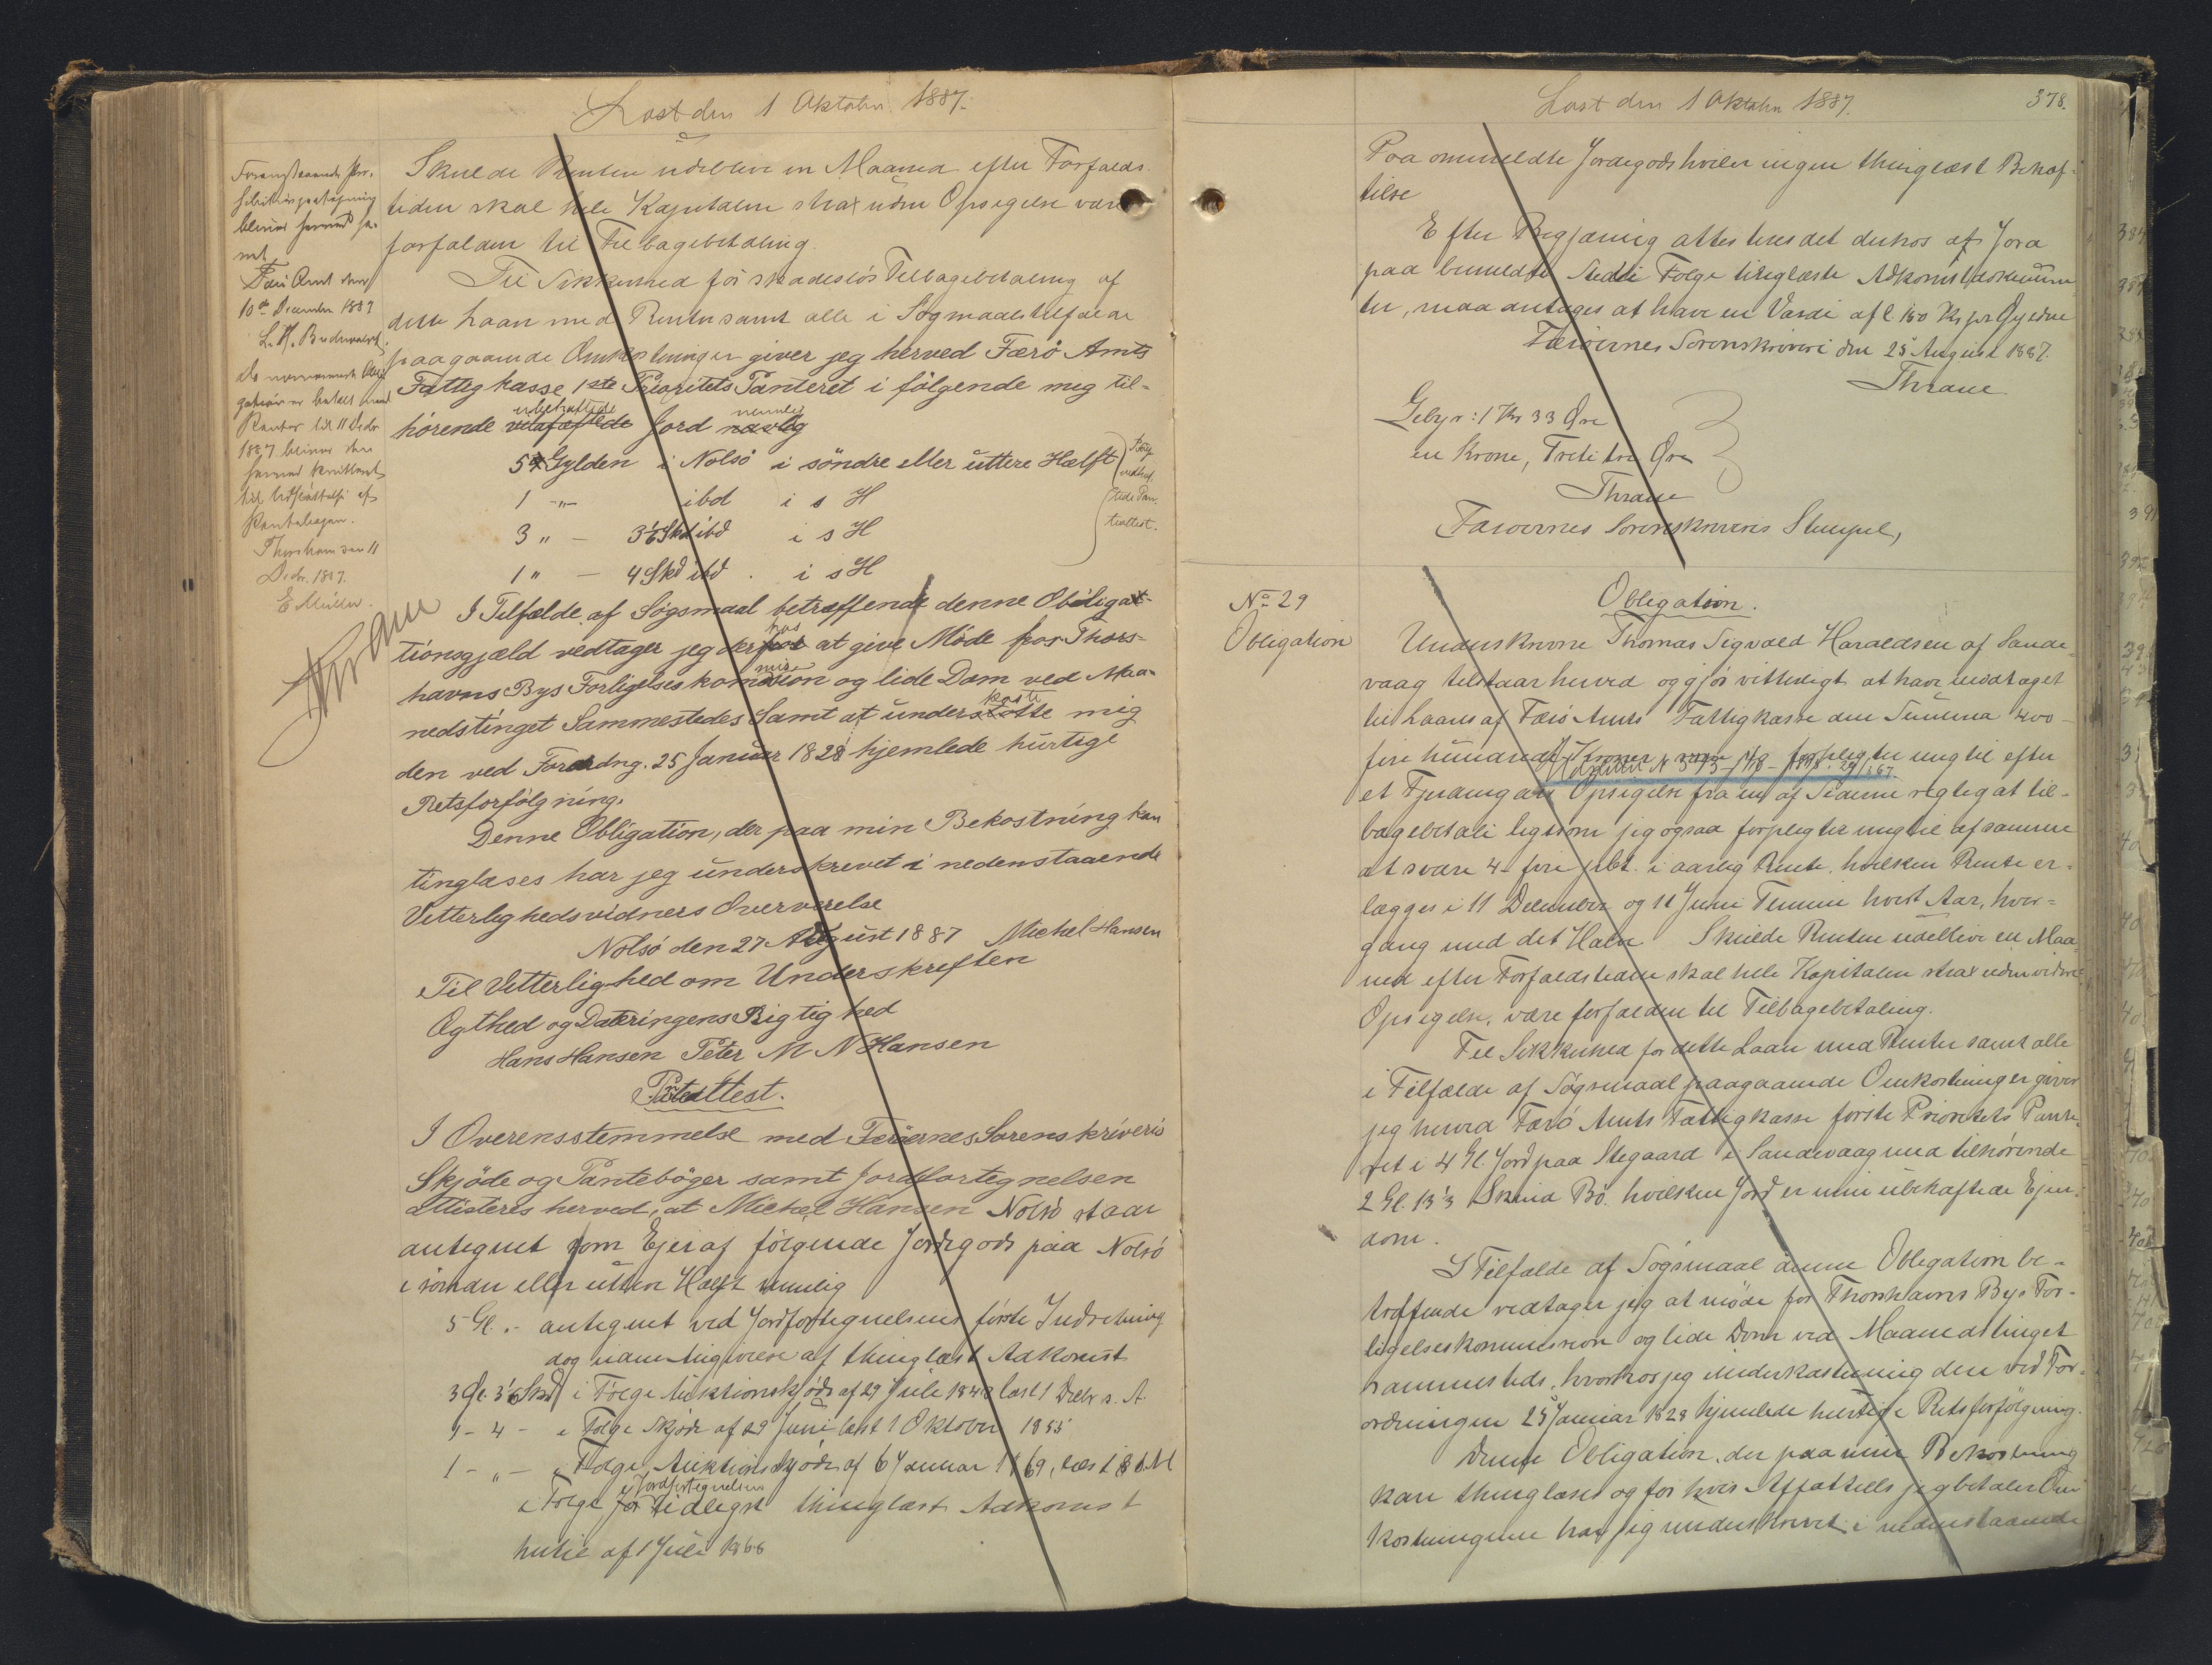 Læst den 1 Oktober 1887.
Foranstaaende Pri-
bliver herved
Færø Amt den
10de December 1887
Da nærværende Obli-
gation er betalt med
Renter til 11 Decbr
1887 bliver den
herved kvitteret
til Udslettelse af
Pantebogen.
Thorshavn den 11
Decbr. 1887.
E Müller.
Thrane
Skulde Renten udeblive en Maaned efter Forfalds
tiden skal hele Kapitalen strax uden Opsigelse være
forfalden til Tilbagebetaling.
Til Sikkerhed for skadeslös Tilbagebetaling af
dette Laan med Renter samt alle i Sögmaalstilfælde
paagaaende Omkostninger giver jeg herved Færö Amts
Fattigkasse 1ste Prioritets Panteret i fölgende mig til-
hörende ubehæftede Jord nemlig
5 Gylden i Nolsö i söndre eller üttere Hælft
1 -"- ibd i s H
3 " - 3 1/6 Skd ibd i s H
1 " - 4 Skd ibd. i s H
ifölge
vedhef-
tede Pan-
teattest.
I Tilfælde af Sögsmaal betræffende denne Obliga-
tionsgjæld vedtager jeg derhos at give Möde for Thors-
havns Bys Forligelseskommission og lide Dom ved Maa-
nedstinget Sammestedes Samt at underkaste mig
den ved Forordng. 25 Januar 1828 hjemlede hurtige
Retsforfölgning.
Denne Obligation, der paa min Bekostning kan
tinglæses har jeg underskrevet i nedenstaaende
Vitterlighedsvidners Overværelse
Nolsö den 27 August 1887 Michel Hansen
Til Vitterlighed om Underskriften
Ægthed og Dateringens Rigtighed
Hans Hansen Peter M N Hansen
Panteattest.
I Overensstemmelse med Færöernes Sorenskriveris
Skjöde og Panteböger samt Jordfortegnelsen
attisteres herved, at Michel Hansen Nolsö staar
antegnet som Ejer af fölgende Jordegods paa Nolsö
i söndre eller uttere Hælft nemlig
5 Gl. - antegnet ved Jordfortegnelsens förste Indretning
dog uden Angivelse af thinglæst Adkomst
3 Gl. 3 1/6 Skd i Fölge Auktionskjöde af 29 Juli 1848 læst 1 Decbr s. A.
1 - 4 - i Fölge Skjöde af 29 Juni læst 1 Oktober 1855
1 - " - i Fölge Auktionsskjöde af 6 Januar 1869, læst s. A.
i Fölge i Jordfortegnelsen tidligst thinglæst Adkomst
hertil af 1 Juli 1868
Læst den 1 Oktober 1887.
378.
Paa ommeldte Jordegods hviler ingen thinglæst Behæf-
telse
Efter Begjæring attesteres det derhos at Jord
paa bemeldte Sted i Fölge tinglæste Adkomstdokumen-
ter, maa antages at have en Værdi af C 150 Kr pr Gylden
Færöernes Sorenskriveri den 25 August 1887.
Thrane
Gebyr: 1 Kr 33 Öre
en Krone, Treti tre Öre
Thrane
Færöernes Sorenskriveris Stempel,
No 29
Obligation
Obligation.
Underskrevne Thomas Sigvald Haraldsen af Sande-
vaag tilstaar herved og gjör vitterligt at have modtaget
til Laans af Færö Amts Fattigkasse den Summa 400 -
fire hundrede Kroner som jeg forpligter mig til efter
et Fjerdingaars Opsigelse fra en af Siderne rigtig at til-
bagebetale ligesom jeg ogsaa forpligter mig til af samme
at svare 4 - fire prct. i aarlig Rente, hvilken Rente er-
lægges i 11 December og 11 Juni Termin hvert Aar, hver-
gang med det Halve Skulde Renten udeblive en Maa-
ned efter Forfaldstiden skal hele Kapitalen strax uden videre
Opsigelse, være forfalden til Tilbagebetaling.
Til Sikkerhed for dette Laan med Renter samt alle
i Tilfælde af Sögsmaal paagaaende Omkostninger giver
jeg herved Færö Amts Fattigkasse förste Prioritets Pante-
ret i 4 Gl. Jord paa Stegaard i Sandevaag med tilhörende
2 Gl. 13 1/3 Skind Bö. hvilken Jord er min ubehæftede Ejen-
dom.
I Tilfælde af Sögsmaal denne Obligation be-
træffende vedtager jeg at möde for Thorshavns Bys For-
ligelseskommission og lide Dom ved Maanedstinget
sammesteds, hvorhos jeg underkaster mig den ved For-
ordningen 25 Januar 1828 hjemlede hurtige Retsforfölgning.
Denne Obligation, der paa min Bekostning
kan thinglæses og for hvis Affattelse jeg betaler Om
kostningerne har jeg underskrevet i nedenstaaende